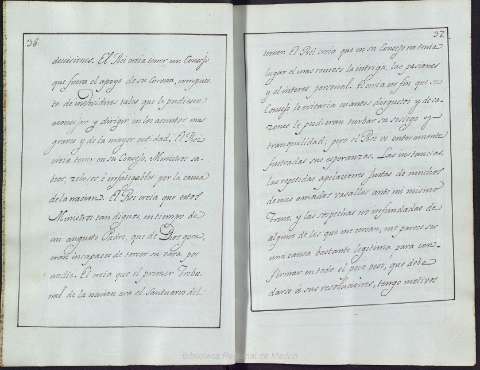 36.
decisiones. El Rei creia tener un Consejo
que fuera el apoyo de su Corona, compues-
to de individuos tales que le pudiesen
aconsejar y dirigir en los asuntos mas
graves y de la mayor entidad; El Rei
creia tener en su Consejo, Ministros sa-
bios, zelosos e infatigables por la causa
de la nacion. El Rei creia que estos
Ministros tan dignos en tiempo de
su augusto Padre, que de Dios goza,
eran incapaces de torcer su vara por
nadie. El creia que el primer Tribu-
nal de la nacion era el santuario del
37.
honor. El Rei creia que en su Consejo no tenia
lugar el una vez la intriga, las pasiones
y el interes personal. Pensaba en fin que su
Consejo le evitaria quantos disgustos y desa-
zones le pudieran turbar su sosiego y
tranquilidad; pero el Rei ve enteramente
frustradas sus esperanzas. Las instancias,
las repetidas agitaciones justas de muchos
de mis amados vasallos ante mi mismo
Trono, y las sospechas no infundadas de
alguno de los que me cercan, me parece sea
una causa bastante legitima para con-
firmar en todo el que pese, que deba
darse a sus resoluciones, tengo motivos
Biblioteca Regional de Madrid